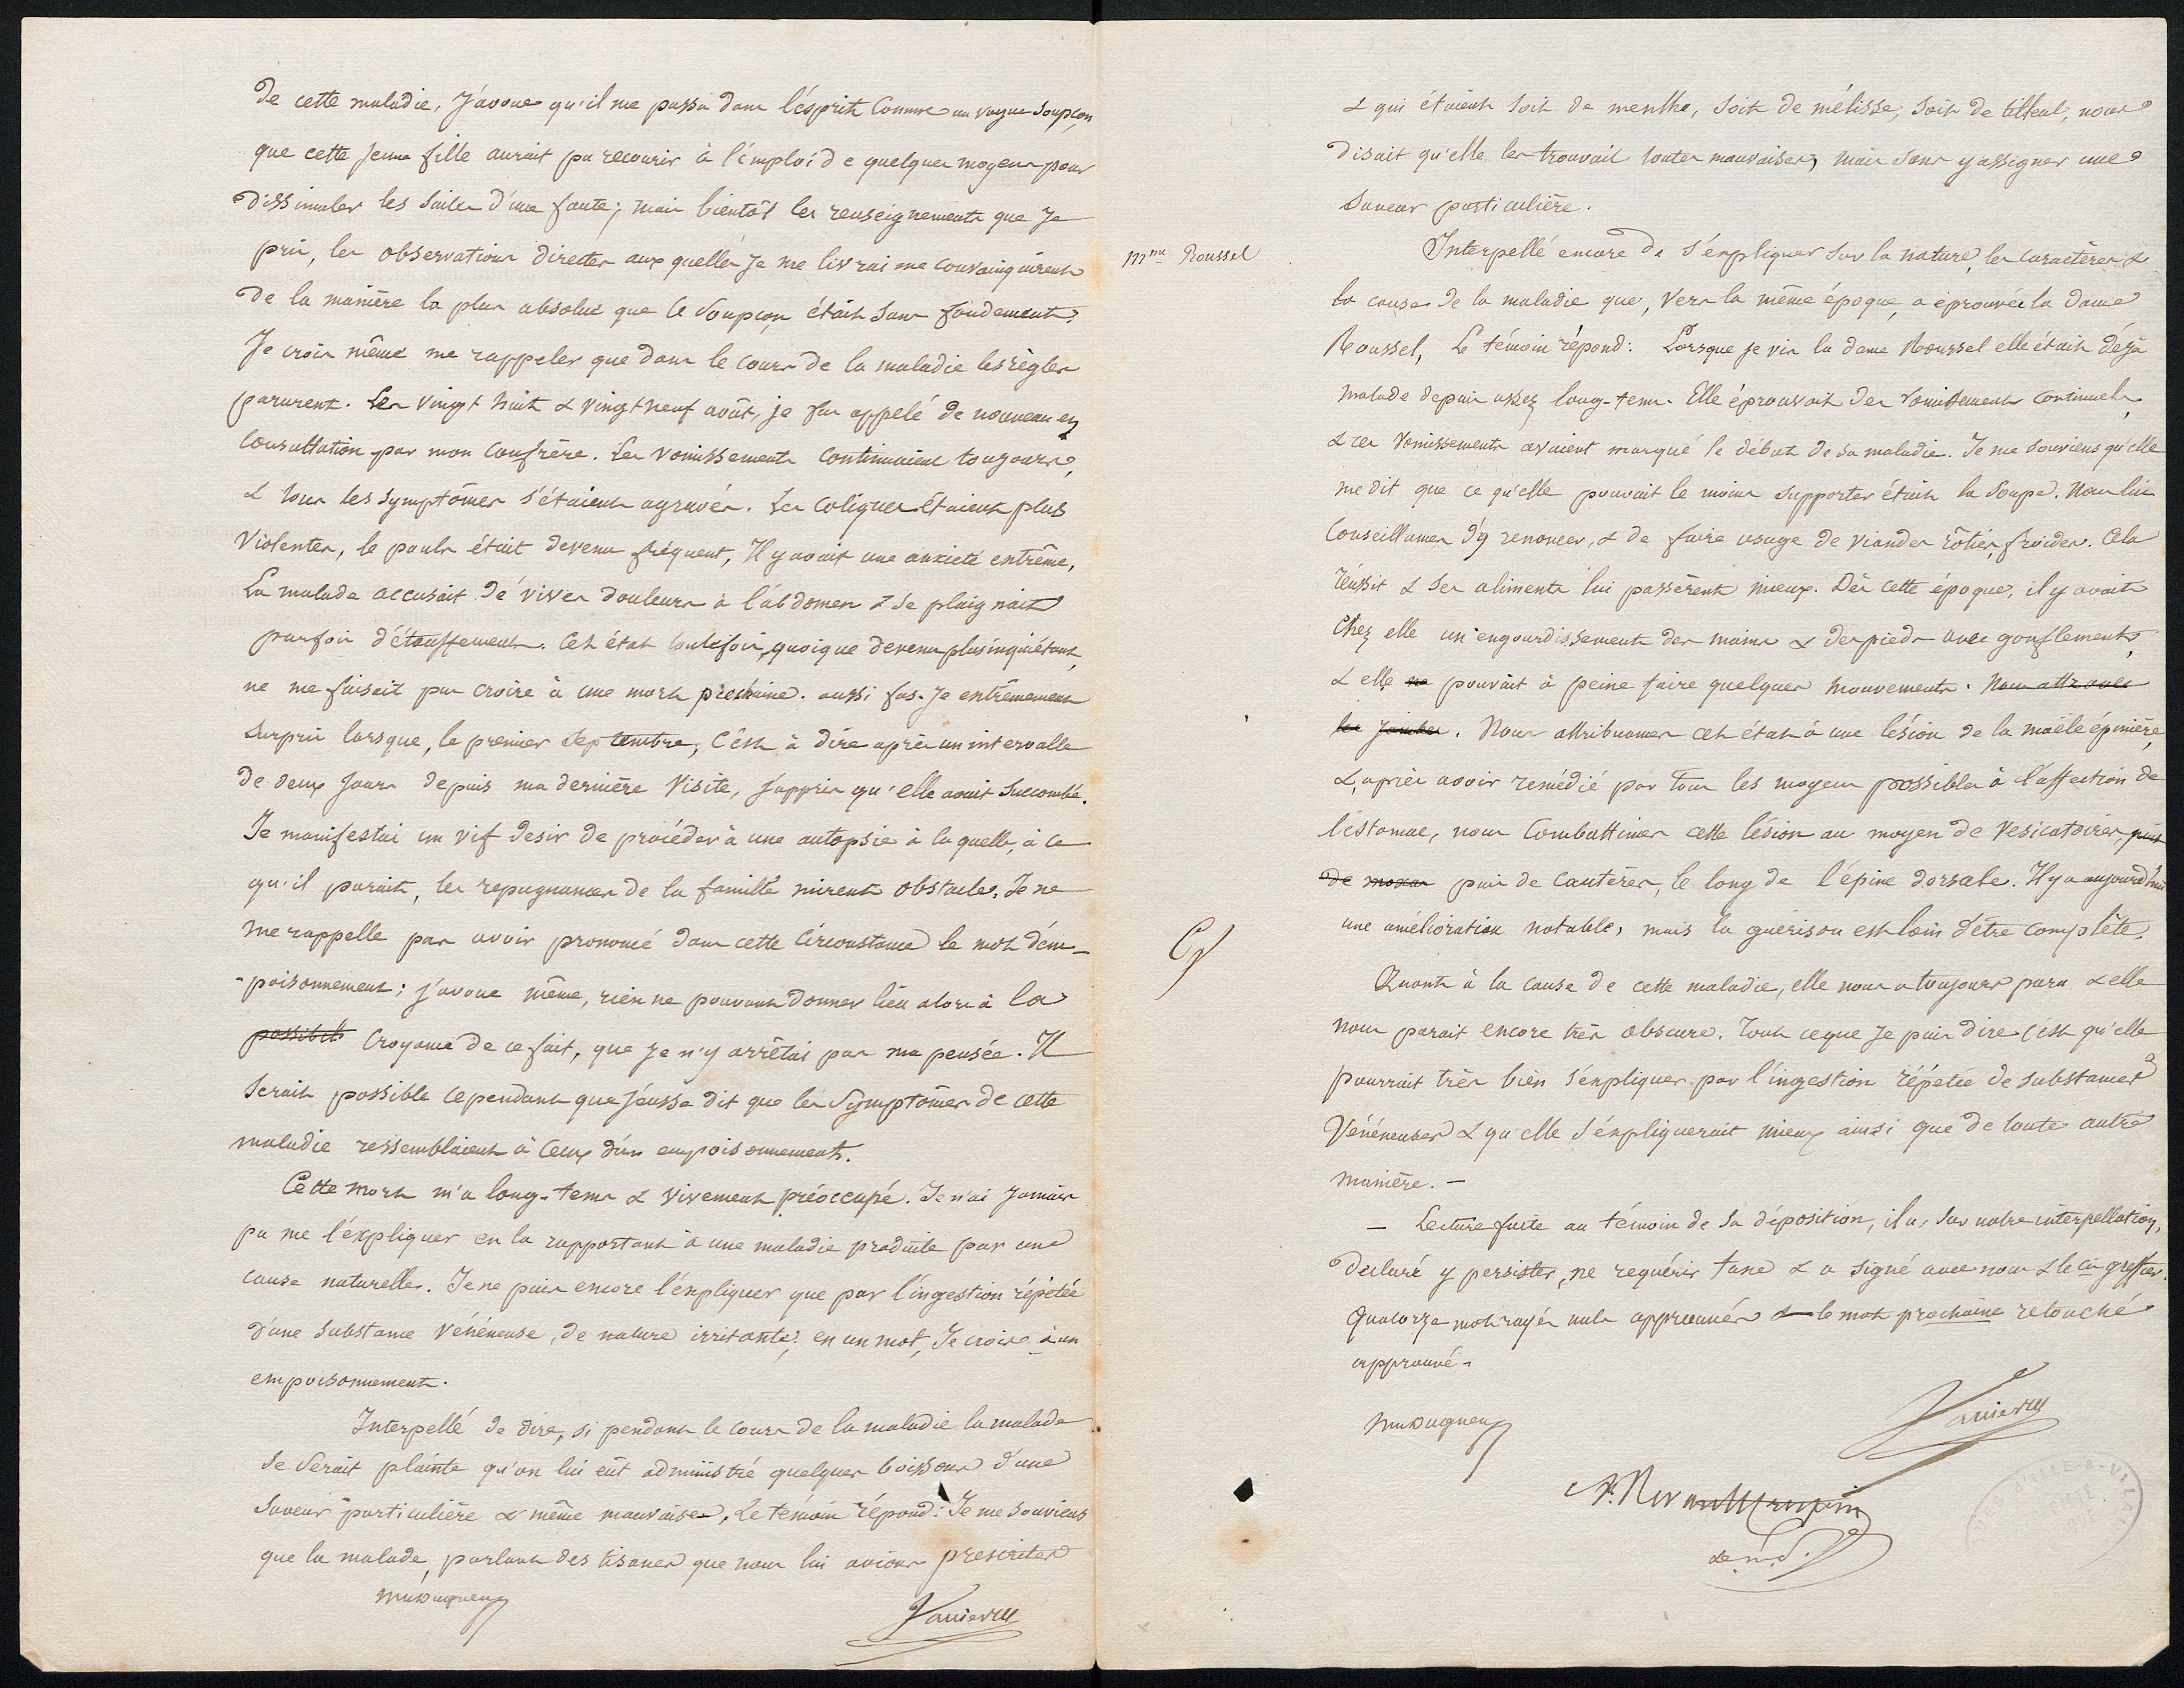 de cette maladie, j'avoue qu'il me passa dans l'ésprit comme un vague soupçon
que cette jeune fille aurait pu recourir à l'émploi de quelques moyens pour
dissimuler les suites d'une faute; mais bientôt les renseignements que je
pris, les observations directes auxquelles je me livrai me convainquirent
de la manière la plus absolue que le soupçon était sans fondement.
Je crois même me rappeler que dans le cours de la maladie les règles
parurent. Les vingt huit & vingt neuf août, je fus appelé de nouveau en
consultation par mon confrère. Les vomissements continuaient toujours,
& tous les symptômes s'étaient agravés. Les coliques étaient plus
violentes, le pouls était devenu fréquent, Il y avait une anxieté extrême,
La malade accusait de vives douleurs à l'abdomen & se plaignait
parfois d'étouffements. Cet état toutefois, quoique devenu plus inquiétant,
ne me faisait pas croire à une mort prochaine. aussi fus-je extrêmement
surpris lorsque, le premier septembre, c'ést à dire après un intervalle
de deux jours depuis ma dernière visite, j'appris qu'elle avait succombé.
Je manifestai un vif desir de procéder à une autopsie à laquelle, à ce
qu'il parait, les repugnances de la famille mirent obstacle. Je ne
me rappelle pas avoir prononcé dans cette circonstance le mot d'em-
-poisonnement; j'avoue même, rien ne pouvant donner lieu alors à la
possibilité croyance de ce fait, que je n'y arrêtai pas ma pensée. Il
serait possible cependant que j'eusse dit que les symptômes de cette
maladie ressemblaient à ceux d'un empoisonnement.
Cette mort m'a long-tems & vivement préoccupé. Je n'ai jamais
pu me l'éxpliquer en la rapportant à une maladie produite par une
cause naturelle. Je ne puis encore l'éxpliquer que par l'ingestion répétée
d'une substance vénéneuse, de nature irritante; en un mot, Je crois à un
empoisonnement.
Interpellé de dire, si pendant le cours de la maladie la malade
se serait plainte qu'on lui eût administré quelques boissons d'une
saveur particulière & même mauvaise, Le témoin répond: Je me souviens
que la malade, parlant des tisanes que nous lui avions prescrites
& qui étaient soit de menthe, soit de mélisse, soit de tilleul, nous
disait qu'elle les trouvait toutes mauvaises, mais sans y assigner une
saveur particulière.
Mme Roussel
Interpellé encore de s'éxpliquer sur la nature, les caractères &
la cause de la maladie que, vers la même époque, a éprouvée la dame
Roussel, Le témoin répond: Lorsque je vis la dame Roussel elle était déjà
malade depuis assez long-tems. Elle éprouvait des vomissements continuels,
& ces vomissements avaient marqué le début de sa maladie. Je me souviens qu'elle
me dit que ce qu'elle pouvait le moins supporter était la soupe. Nous lui
conseillames d'y renoncer, & de faire usage de viandes rôties, froides. Cela
réussit & ses aliments lui passèrent mieux. Dès cette époque, il y avait
chez elle un engourdissement des mains & des pieds avec gonflement,
& elle ne pouvait à peine faire quelques mouvements.
les jambes. Nous attribuames cet état à une lésion de la moële épinière,
&, après avoir remédié par tous les moyens possibles à l'affection de
l'éstomac, nous combattimes cette lésion au moyen de vesicatoires, puis
de moxas puis de cautères, le long de l'épine dorsale. Il y a aujourd'hui
une amélioration notable, mais la guérison est loin d'être complète.
Quant à la cause de cette maladie, elle nous a toujours paru & elle
nous parait encore très obscure. Tout ce que je puis dire c'ést qu'elle
pourrait très bien s'éxpliquer par l'ingestion répétée de substances
vénéneuses & qu'elle s'éxpliquerait mieux ainsi que de toute autre
manière. —
— Lecture faite au témoin de sa déposition, il a, sur notre interpellation,
declaré y persister, ne requérir taxe & a signé avec nous & le cis greffier.
Quatorze mots rayés nuls approuvés & le mot prochaine retouché
approuvé.